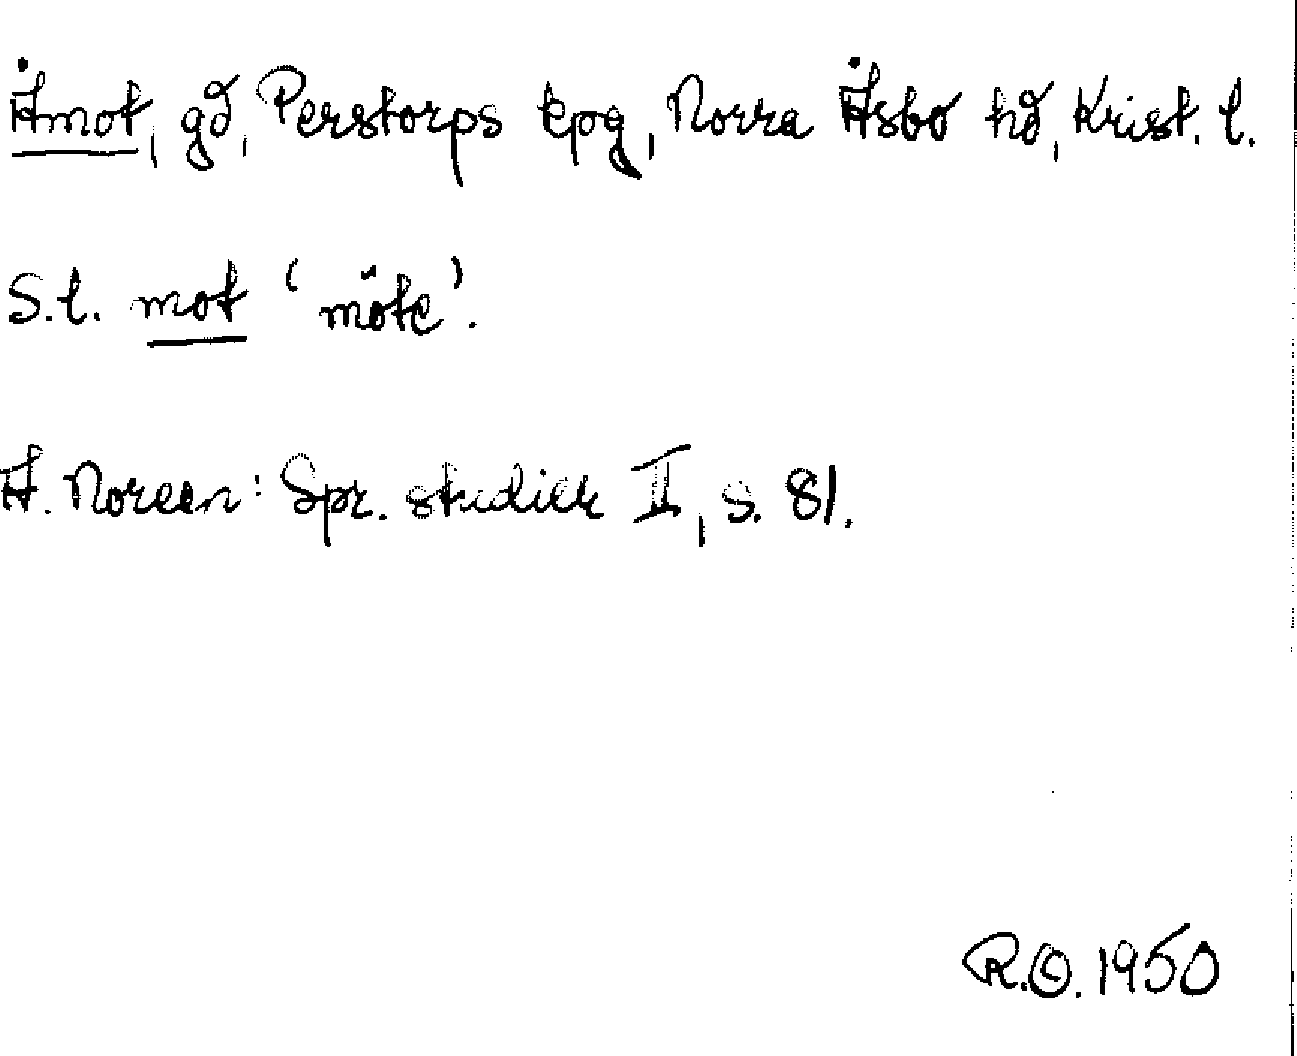 Åmot, gd, Perstorps kpg, Norra Åsbo hd, Krist. l.
S.l. mot 'möte'.
A. Noreen: Spr. studier II, s. 81.
R.O. 1950